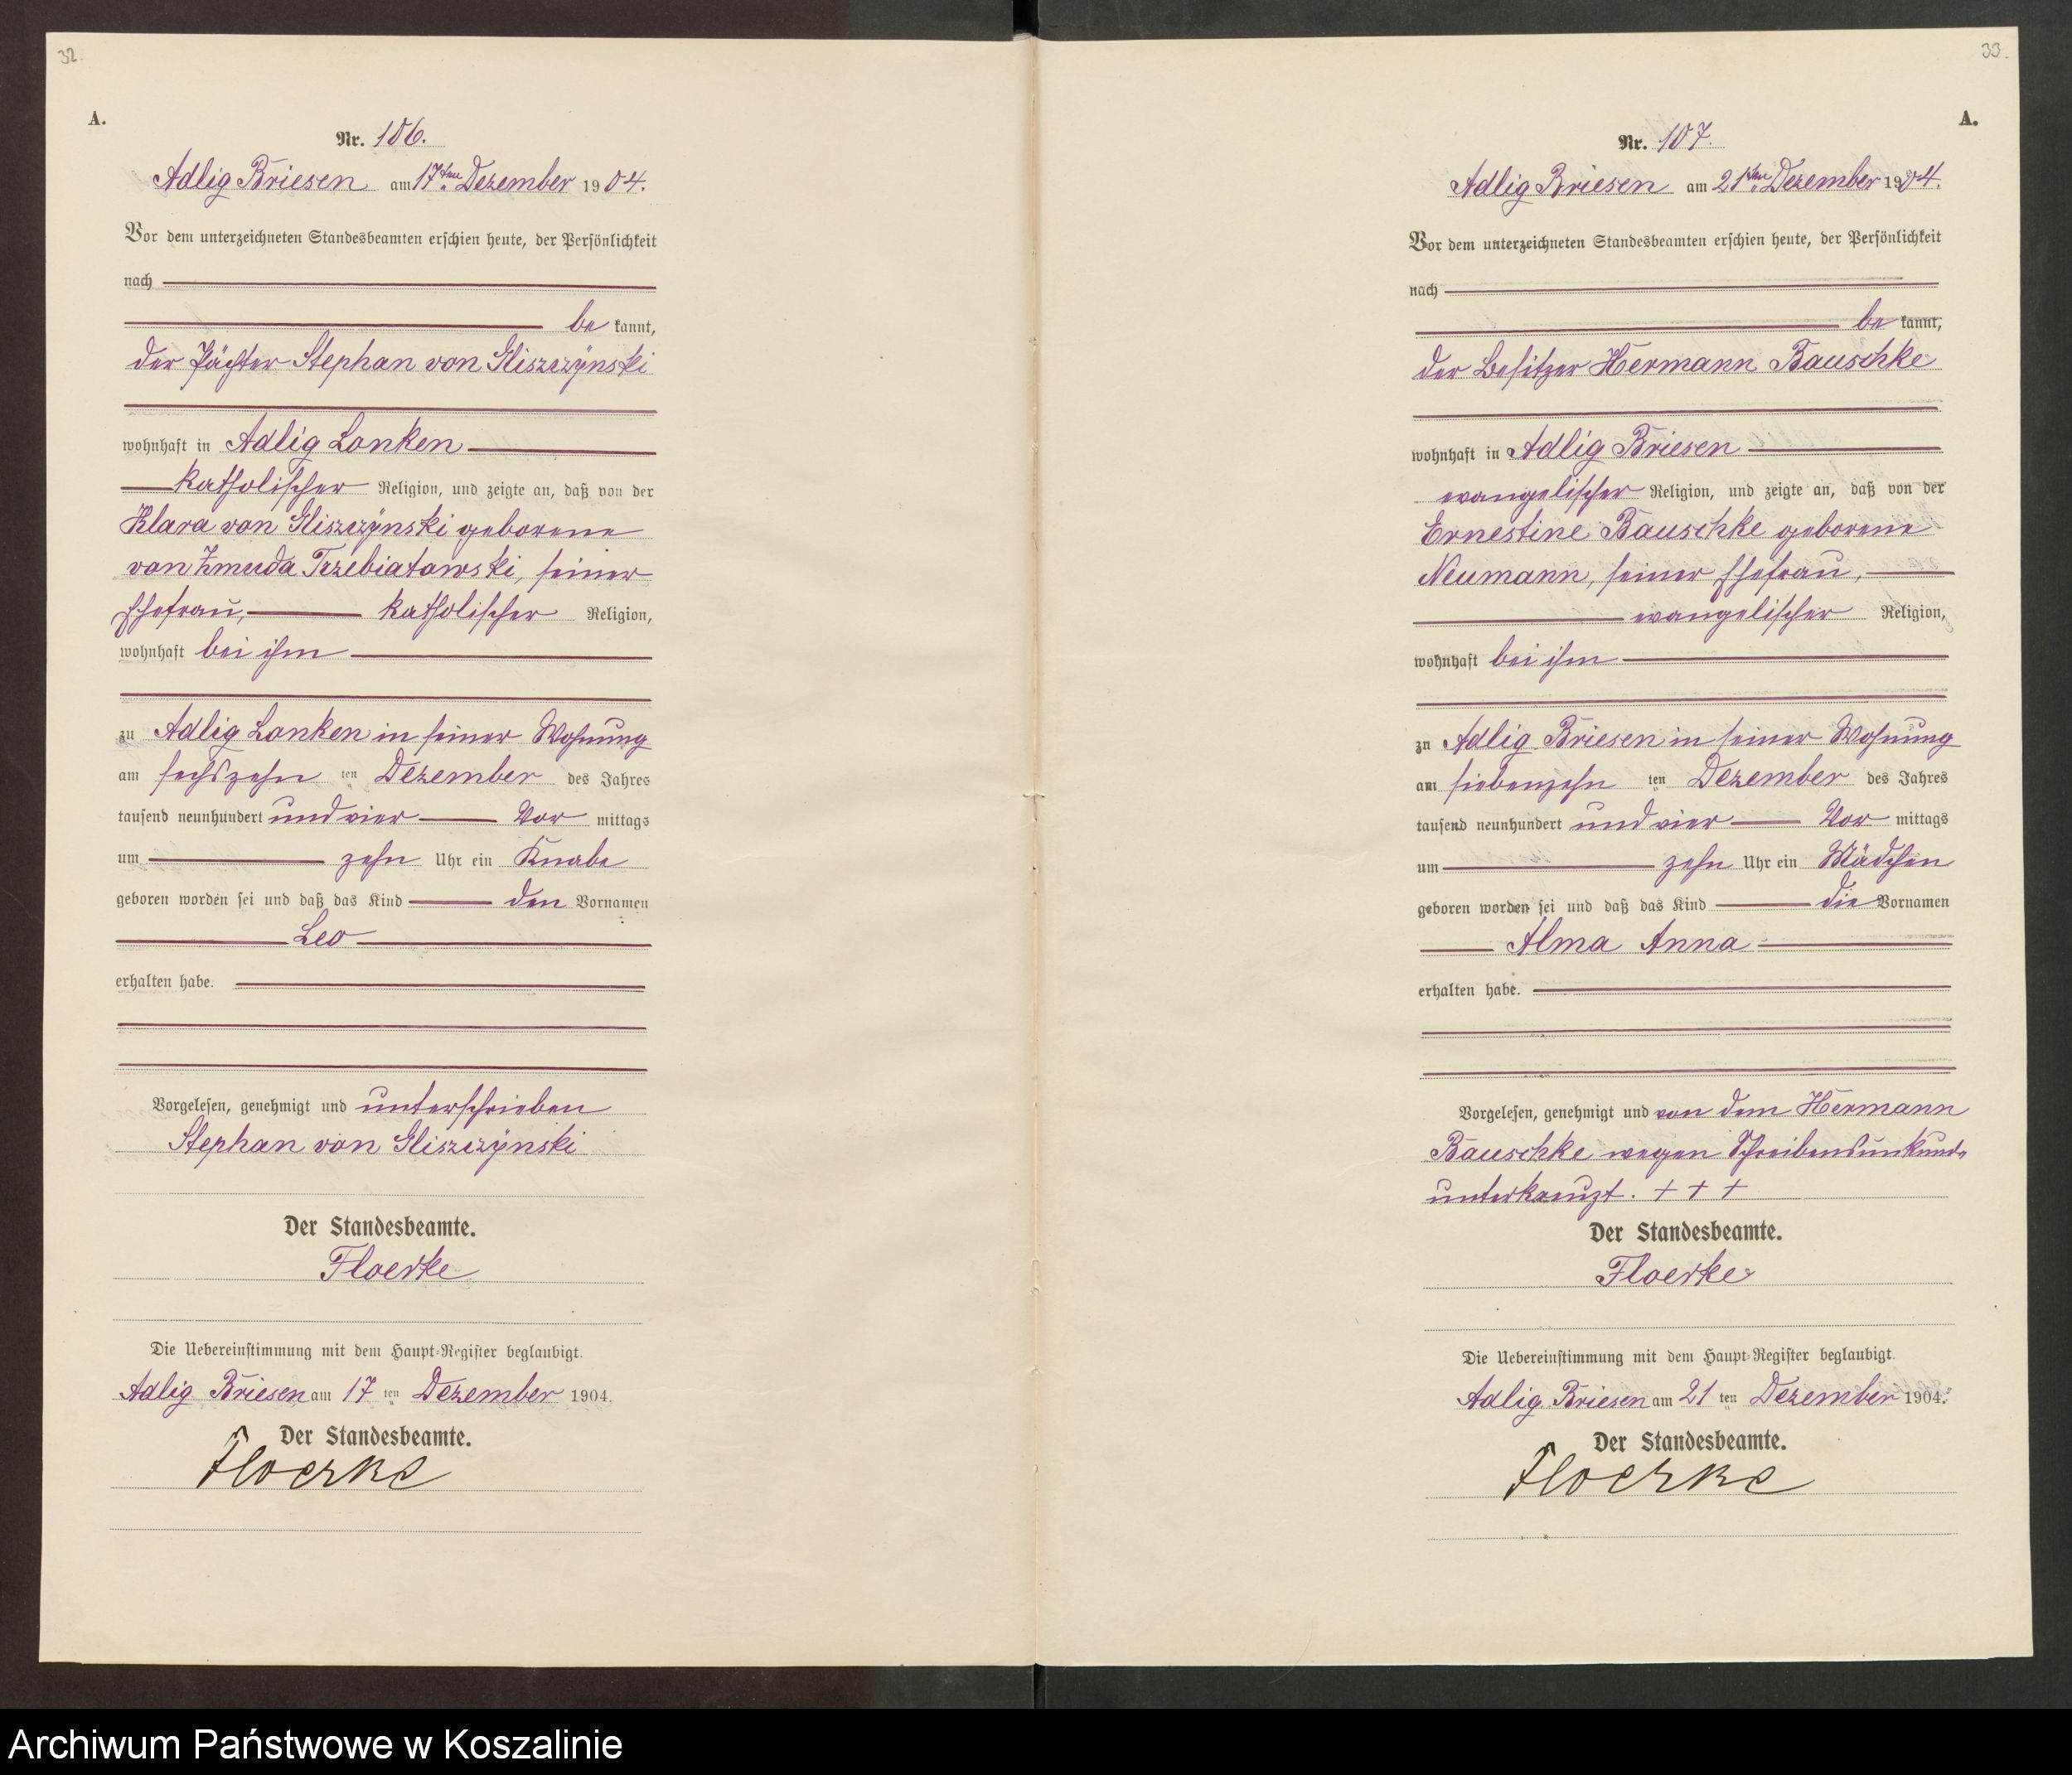 32.
A.
Nr. 106.
Adlig Briesen am 17ten Dezember 1904.
Vor dem unterzeichneten Standesbeamten erschien heute, der Persönlichkeit
nach
be kannt,
der Pächter Stephan von Gliszczÿnski
wohnhaft in Adlig Lonken
katholischer Religion, und zeigte an, daß von der
Klara von Gliszczÿnski geborene
von Zmuda Trzebiatowski, seiner
Ehefrau, katholischer Religion,
wohnhaft bei ihm
zu Adlig Lonken in seiner Wohnung
am sechszehn ten Dezember des Jahres
tausend neunhundert und vier Vor mittags
um zehn Uhr ein Knabe
geboren worden sei und daß das Kind den Vornamen
Leo
erhalten habe.
Vorgelesen, genehmigt und unterschrieben
Stephan von Gliszczÿnski
Der Standesbeamte.
Floerke
Die Uebereinstimmung mit dem Haupt-Register beglaubigt.
Adlig Briesen am 17 ten Dezember 1904.
Der Standesbeamte.
Floerke
33.
A.
Nr. 107.
Adlig Briesen am 21ten Dezember 1904.
Vor dem unterzeichneten Standesbeamten erschien heute, der Persönlichkeit
nach
be kannt,
der Besitzer Hermann Bauschke
wohnhaft in Adlig Briesen
evangelischer Religion, und zeigte an, daß von der
Ernestine Bauschke geborene
Neumann, seiner Ehefrau,
evangelischer Religion,
wohnhaft bei ihm
zu Adlig Briesen in seiner Wohnung
am siebenzehn ten Dezember des Jahres
tausend neunhundert und vier Vor mittags
um zehn Uhr ein Mädchen
geboren worden sei und daß das Kind die Vornamen
Alma Anna
erhalten habe.
Vorgelesen, genehmigt und von dem Hermann
Bauschke wegen Schreibensunkunde
unterkreuzt. + + +
Der Standesbeamte.
Floerke
Die Uebereinstimmung mit dem Haupt-Register beglaubigt.
Adlig Briesen am 21 ten Dezember 1904.
Der Standesbeamte.
Floerke
Archiwum Państwowe w Koszalinie